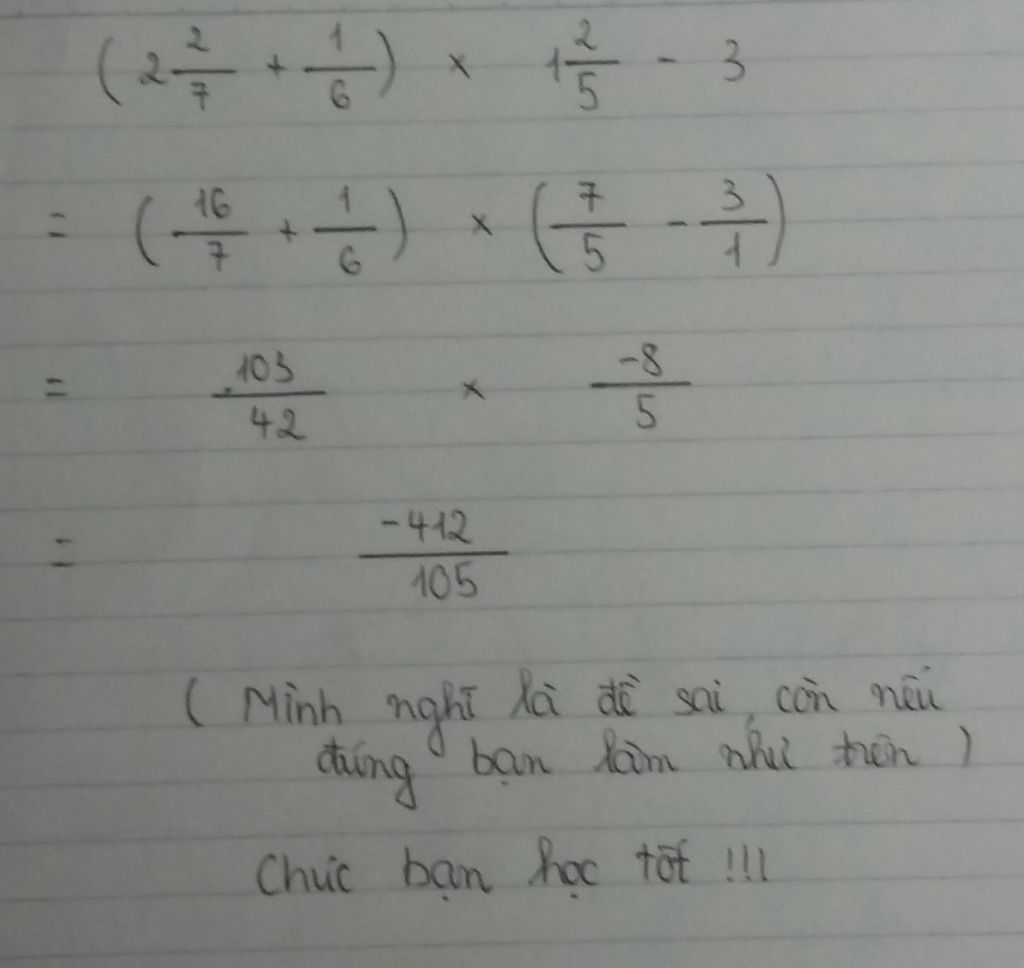 (2 2/7 + 1/6) × 1 2/5 - 3
= (16/7 + 1/6) × (7/5 - 3/1)
= 103/42 × -8/5
= -412/105
( Mình nghĩ là đề sai, còn nếu
đúng bạn làm như trên )
Chúc bạn học tốt !!!